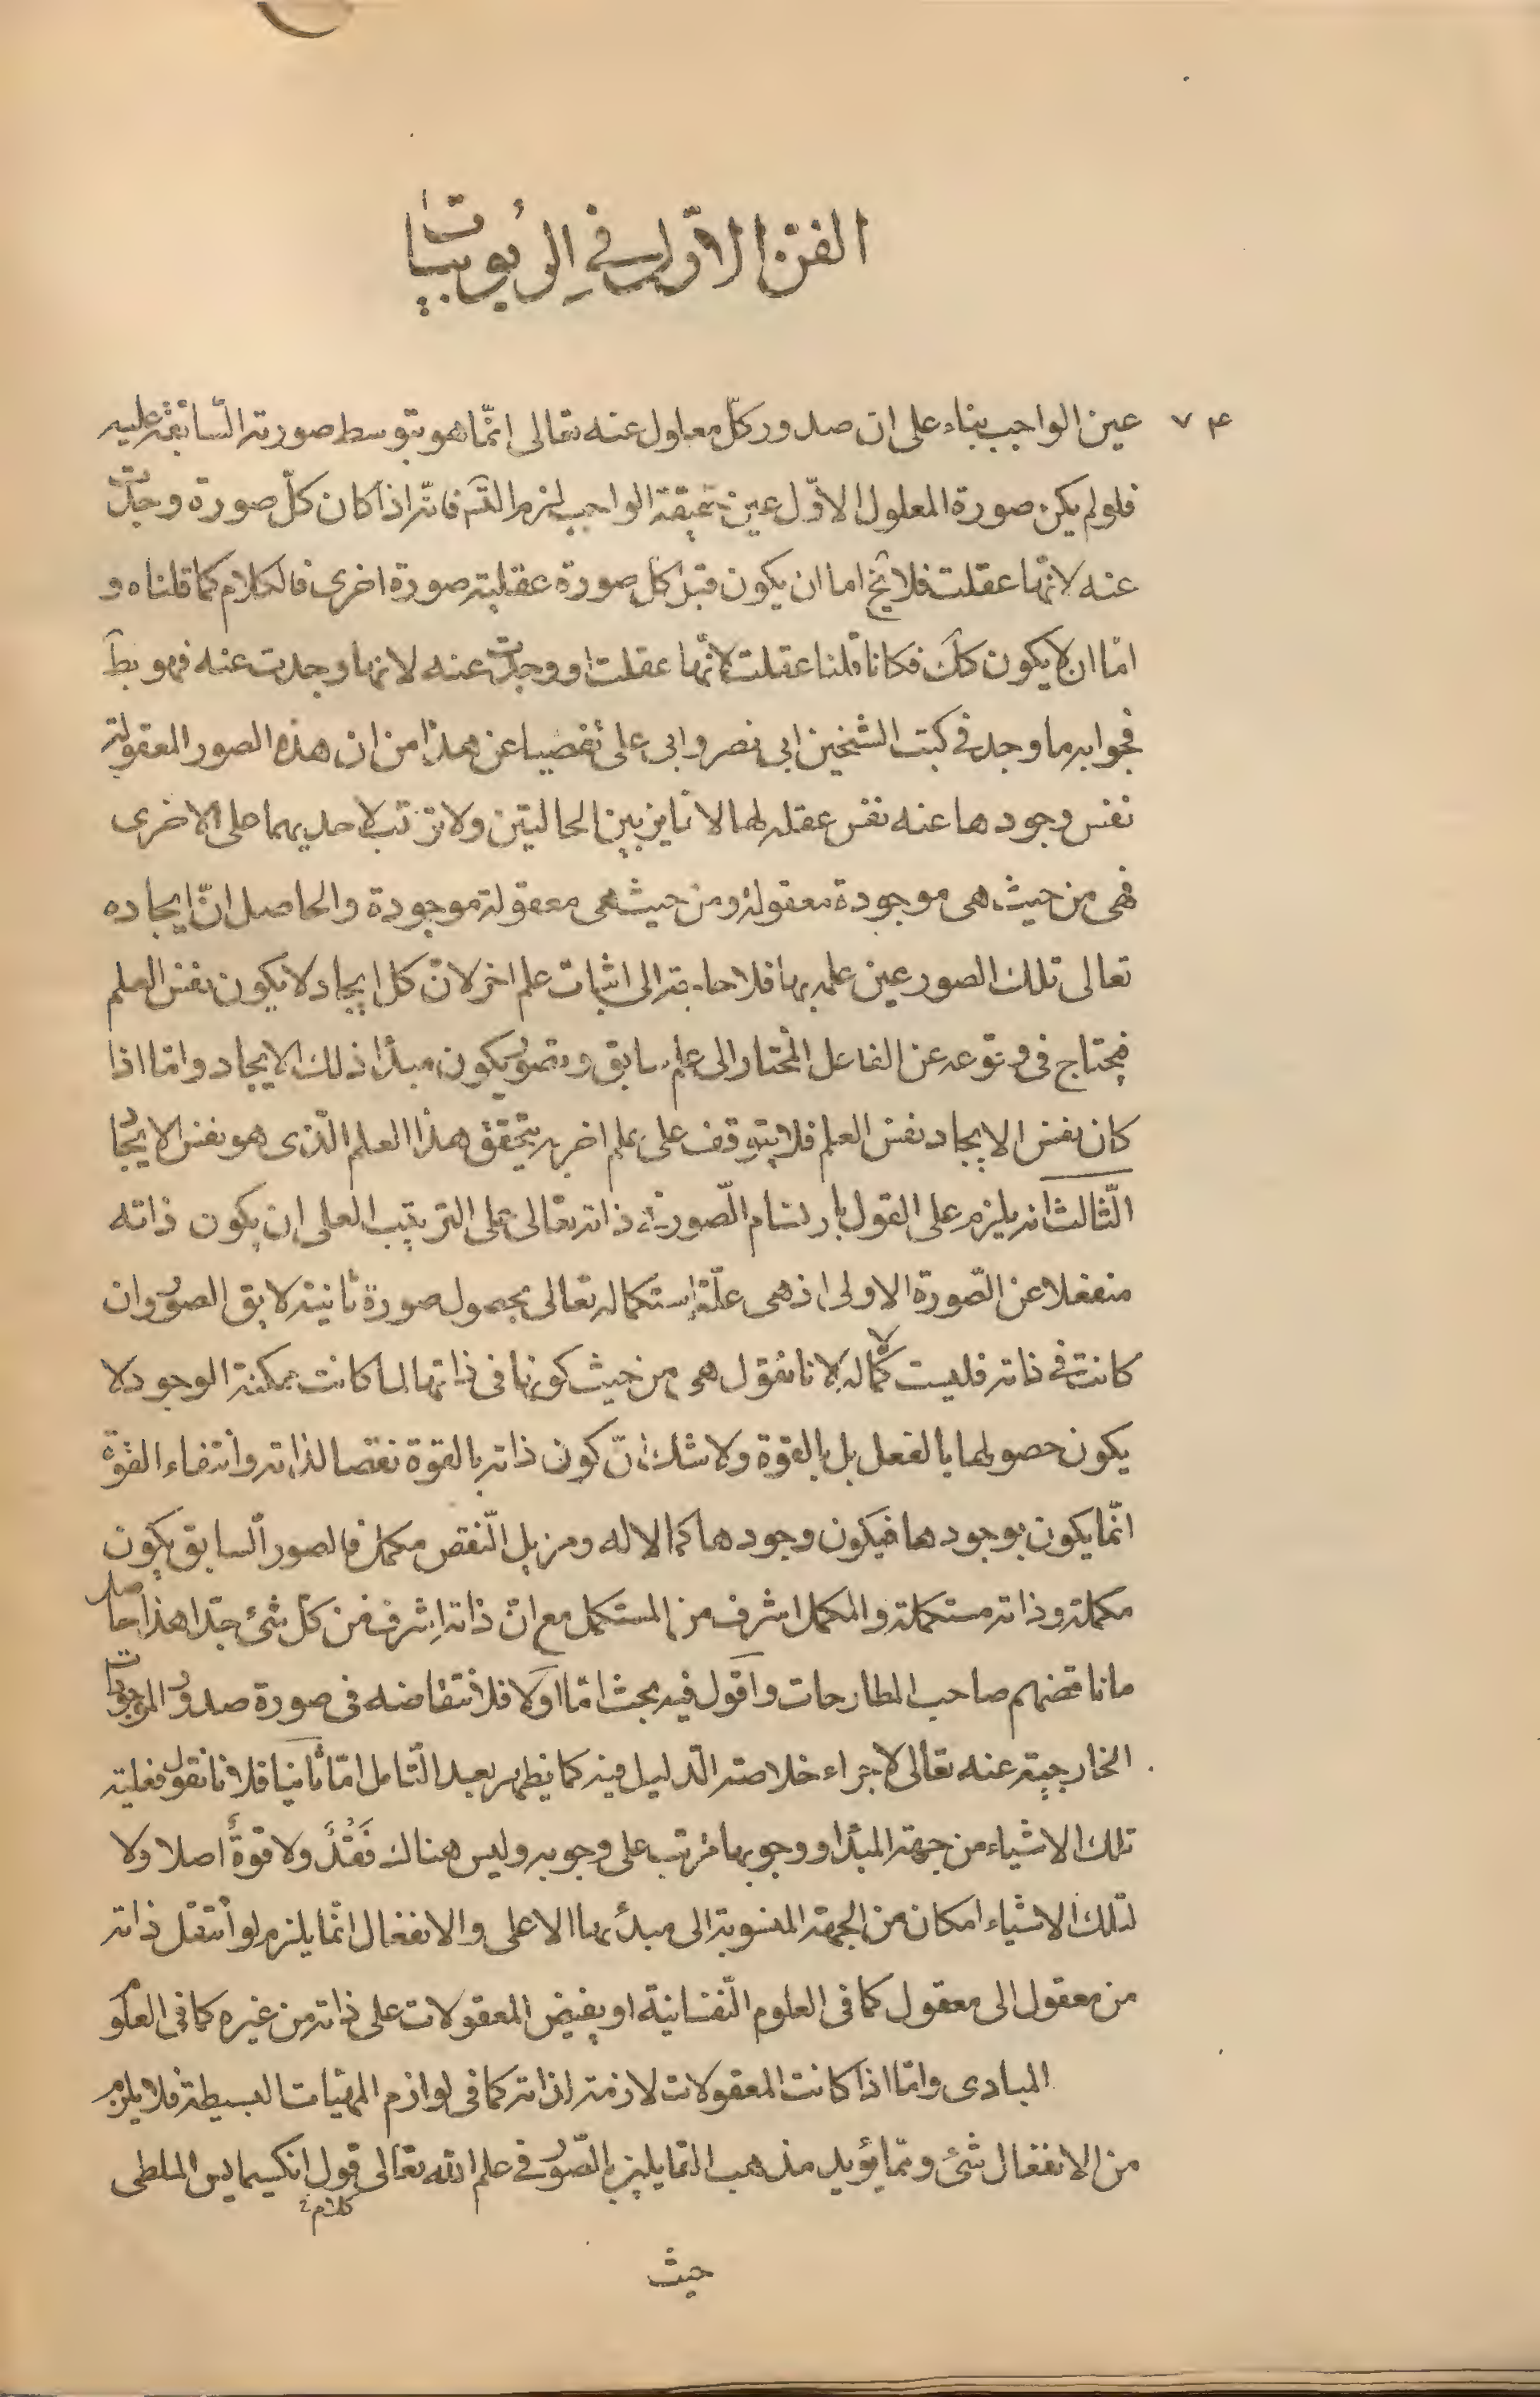 الفن الاوّل في الربوبيات
٧٤
عين الواجب بناء على ان صدور كلّ معلول عنه تعالى انّما هو بتوسط صورته السّابقة عليه
فلو لم يكن صورة المعلول الاوّل عين حقيقة الواجب لزم التّسَ فانّه اذا كان كلّ صورة وجدت
عنه لانّها عقلت فلا يخ اما ان يكون قبل كل صورة عقلية صورة اخرى فالكلام كما قلناه و
امّا ان لا يكون كك فكانا قلنا عقلت لانّها عقلت او وجدت عنه لانها وجدت عنه فهو بط
فجوابه ما وجد في كتب الشيخين ابى نصر وابى على تفصيا عن هذا من ان هذه الصور المعقولة
نفس وجودها عنه نفس عقله لها لا تمايز بين الحاليتين ولا ترتب لاحديهما على الاخرى
فهى من حيث هى موجودة معقولة ومن حيث هى معقولة موجودة والحاصل انّ ايجاده
تعالى تلك الصور عين علمه بها فلا حاجة الى اثبات علم اخر لانّ كل ايجاد لا يكون نفس العلم
فيحتاج فى وقوعه عن الفاعل المختار الى علم سابق وتصوّر يكون مبدأ ذلك الايجاد وامّا اذا
كان نفس الايجاد نفس العلم فلا يتوقف على علم اخر به يتحقق هذا العلم الّذى هو نفس الايجاد
الثّالث انه يلزم على القول بارتسام الصّور فى ذاته تعالى على الترتيب العلى ان يكون ذاته
منفعلا عن الصّورة الاولى اذ هى علّة استكماله تعالى بحصول صورة ثانية لا يق الصور وان
كانت فى ذاته فليست كماله لانا نقول هى من حيث كونها فى ذاتها لما كانت ممكنة الوجود لا
يكون حصولها بالفعل بل بالقوة ولا شك انّ كون ذاته بالقوة نقصا لذاته وانتفاء القوّة
انّما يكون بوجودها فيكون وجودها كمالا له ومزيل النّقص مكمل فالصور السابق يكون
مكملة وذاته مستكملة والمكمل اشرف من المستكمل مع انّ ذاته اشرف من كلّ شئ جدّا هذا حاصل
ما ناقضهم صاحب المطارحات واقول فيه بحث امّا اوّلا فلانتقاضه فى صورة صدور الموجودات
الخارجية عنه تعالى لاجراء خلاصة الدّليل فيه كما يظهر بعد التّامل امّا ثانيا فلانا نقول فعلية
تلك الاشياء من جهة المبدأ ووجوبها مترتب على وجوبه وليس هناك فَقْدٌ ولا قوّةٌ اصلا ولا
لتلك الاشياء امكان من الجهة المنسوبة الى مبدئها الاعلى والانفعال انّما يلزم لو انتقل ذاته
من معقول الى معقول كما فى العلوم النّفسانية او يفيض المعقولات على ذاته من غيره كما فى العلو
المبادى وامّا اذا كانت المعقولات لازمة لذاته كما فى لوازم المهيّات البسيطة فلا يلزم
من الانفعال شئ وممّا يؤيد مذهب القايلين بالصّور فى علم الله تعالى قول انكسيمايس الملطى
كلام
حيث